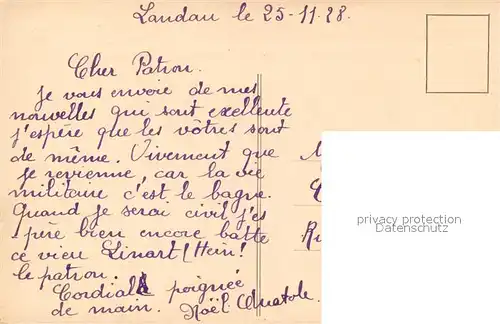 Landau le 25-11-28.
Cher Patron.
Je vous envoie de mes
nouvelles qui sont exellente
j'espère que les vôtres sont
de même. Vivement que
je revienne, car la vie
militaire c'est le bagne.
Quand je serai civil j'es
père bien encore batte
ce vieu Linart (Hein!
le patron.
Cordiale poignée
de main. Noël Anatole.
privacy protection
Datenschutz